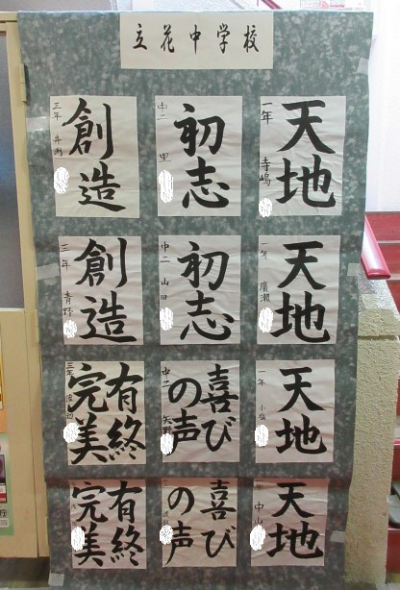 立花中学校
天地
一年 寺嶋
初志
中二 里
創造
三年
天地
一年 廣瀬
初志
中二 山田
創造
三年 青野
天地
一年 小
喜び
の声
中二 矢野
有終
完美
三年
天地
中山
喜び
の声
有終
完美